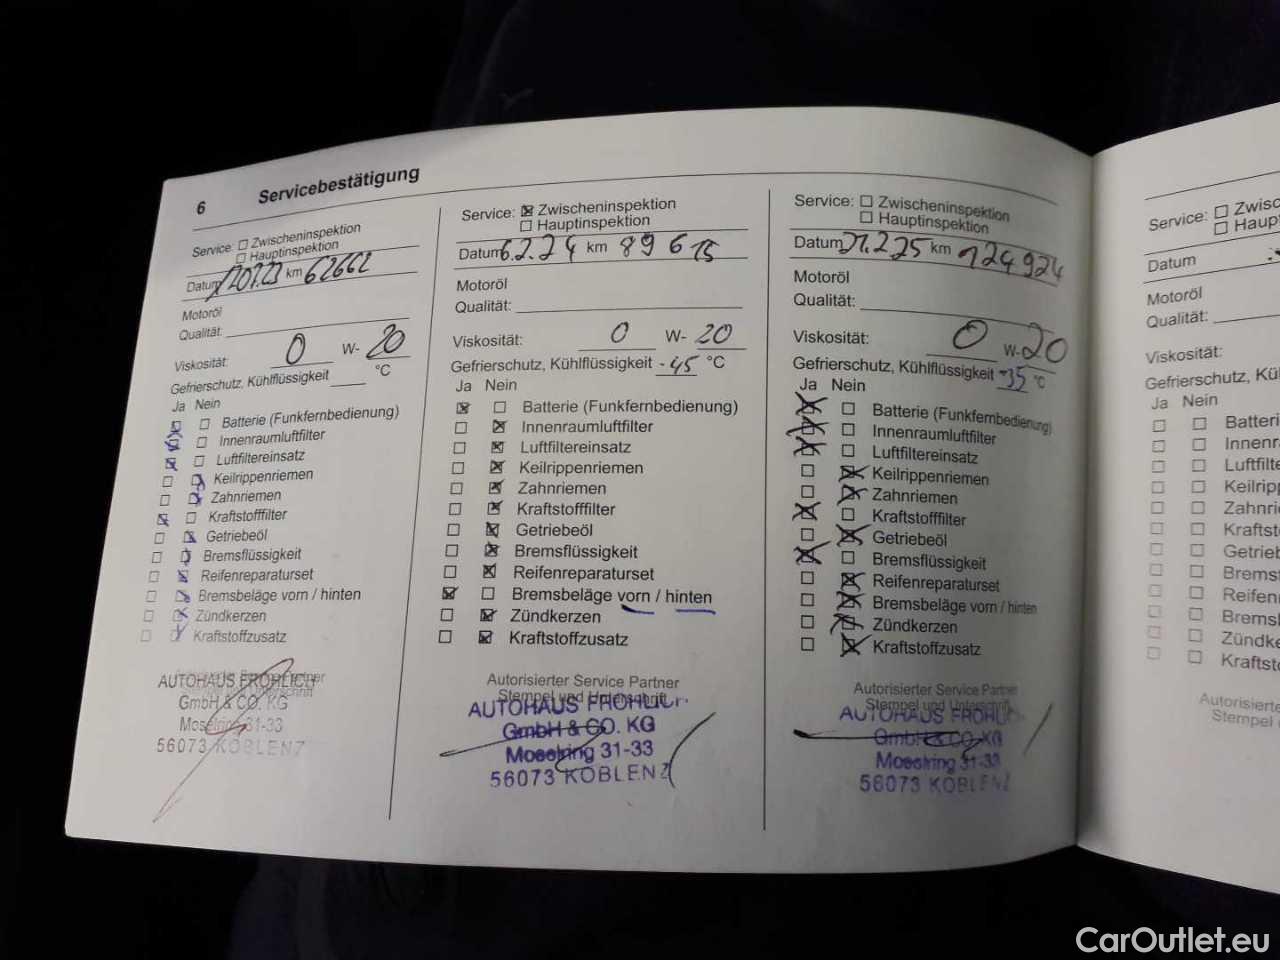 6 Servicebestätigung
Service: ☐ Zwischeninspektion
☐ Hauptinspektion
Datum km 62662
Motoröl
Qualität:
Viskosität: 0 W- 20
Gefrierschutz, Kühlflüssigkeit °C
Ja Nein
Batterie (Funkfernbedienung)
Innenraumluftfilter
Luftfiltereinsatz
Keilrippenriemen
Zahnriemen
Kraftstofffilter
Getriebeöl
Bremsflüssigkeit
Reifenreparaturset
Bremsbeläge vorn / hinten
Zündkerzen
Kraftstoffzusatz
AUTOHAUS FRÖHLICH
GmbH & CO. KG
Moselring 31-33
56073 KOBLENZ
Service: ☒ Zwischeninspektion
☐ Hauptinspektion
Datum 6.2.24 km 89615
Motoröl
Qualität:
Viskosität: 0 W- 20
Gefrierschutz, Kühlflüssigkeit -45 °C
Ja Nein
Batterie (Funkfernbedienung)
Innenraumluftfilter
Luftfiltereinsatz
Keilrippenriemen
Zahnriemen
Kraftstofffilter
Getriebeöl
Bremsflüssigkeit
Reifenreparaturset
Bremsbeläge vorn / hinten
Zündkerzen
Kraftstoffzusatz
Autorisierter Service Partner
Stempel und Unterschrift
AUTOHAUS FRÖHLICH
GmbH & CO. KG
Moselring 31-33
56073 KOBLENZ
Service: ☐ Zwischeninspektion
☐ Hauptinspektion
Datum 21.2.25 km 124924
Motoröl
Qualität:
Viskosität: 0 W- 20
Gefrierschutz, Kühlflüssigkeit -35 °C
Ja Nein
Batterie (Funkfernbedienung)
Innenraumluftfilter
Luftfiltereinsatz
Keilrippenriemen
Zahnriemen
Kraftstofffilter
Getriebeöl
Bremsflüssigkeit
Reifenreparaturset
Bremsbeläge vorn / hinten
Zündkerzen
Kraftstoffzusatz
Autorisierter Service Partner
Stempel und Unterschrift
AUTOHAUS FRÖHLICH
GmbH & CO. KG
Moselring 31-33
56073 KOBLENZ
Service: ☐ Zwisc
☐ Haup
Datum
Motoröl
Qualität:
Viskosität:
Gefrierschutz, Kü
Ja Nein
Batteri
Innenr
Luftfilte
Keilripp
Zahnri
Kraftst
Getrieb
Bremsf
Reifen
Bremsl
Zündke
Kraftsto
Autorisierte
Stempel
CarOutlet.eu